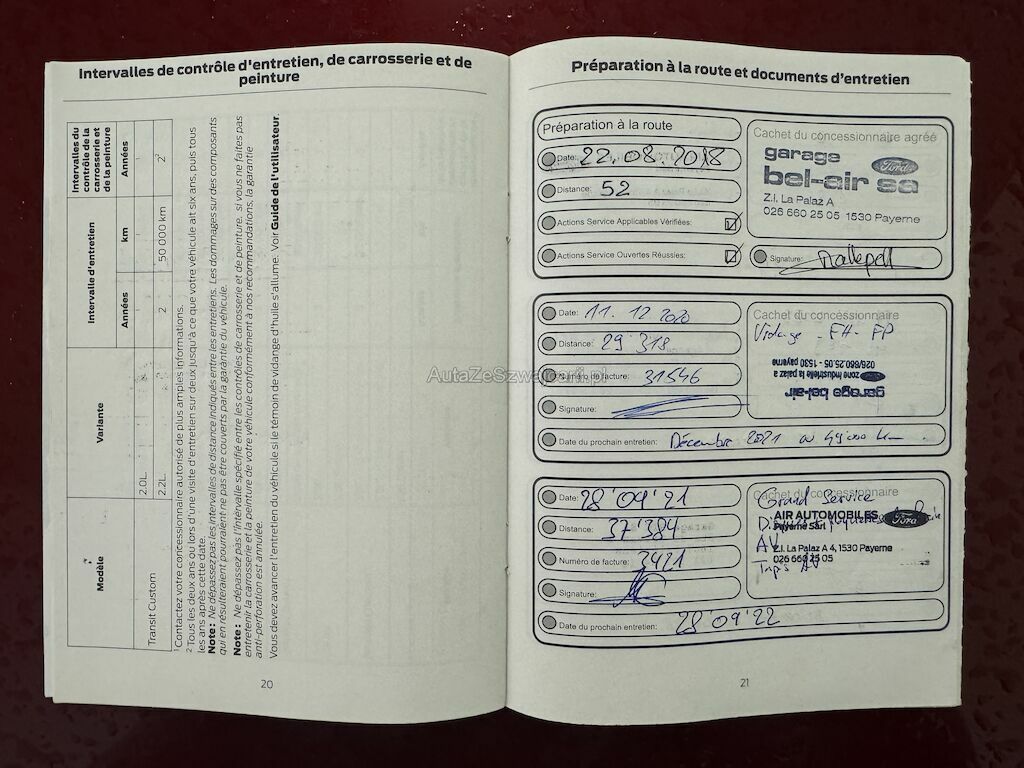 Intervalles de contrôle d'entretien, de carrosserie et de
peinture
Modèle
Variante
Intervalle d'entretien
Intervalles du
contrôle de la
carrosserie et
de la peinture
Années
km
Années
Transit Custom
2.0L
2.2L
2
50 000 km
2²
¹ Contactez votre concessionnaire autorisé de plus amples informations.
² Tous les deux ans ou lors d'une visite d'entretien sur deux jusqu'à ce que votre véhicule ait six ans, puis tous
les ans après cette date.
Note : Ne dépassez pas les intervalles de distance indiqués entre les entretiens. Les dommages sur des composants
qui en résulteraient pourraient ne pas être couverts par la garantie du véhicule.
Note : Ne dépassez pas l'intervalle spécifié entre les contrôles de carrosserie et de peinture. si vous ne faites pas
entretenir la carrosserie et la peinture de votre véhicule conformément à nos recommandations, la garantie
anti-perforation est annulée.
Vous devez avancer l'entretien du véhicule si le témoin de vidange d'huile s'allume. Voir Guide de l'utilisateur.
20
Préparation à la route et documents d'entretien
Préparation à la route
Date: 22.08.2018
Distance: 52
Actions Service Applicables Vérifiées:
Actions Service Ouvertes Réussies:
Cachet du concessionnaire agréé
garage
bel-air sa
Ford
Z.I. La Palaz A
026 660 25 05 1530 Payerne
Signature:
Date: 11.12 2020
Distance: 29 318
Numéro de facture: 31546
Signature:
Date du prochain entretien: Décembre 2021 ou 49000 km.
Cachet du concessionnaire
Vidange - FH - FP
garage bel-air
zone industrielle la palaz a
026/660.25.05 - 1530 payerne
Date: 28'09'21
Distance: 37'384
Numéro de facture: 3421
Signature:
Date du prochain entretien: 28'09'22
Cachet du concessionnaire
Grand Service
AIR AUTOMOBILES
Ford
Payerne Sàrl
AV
Z.I. La Palaz A 4, 1530 Payerne
026 660 25 05
21
AutaZeSzwajcarii.pl